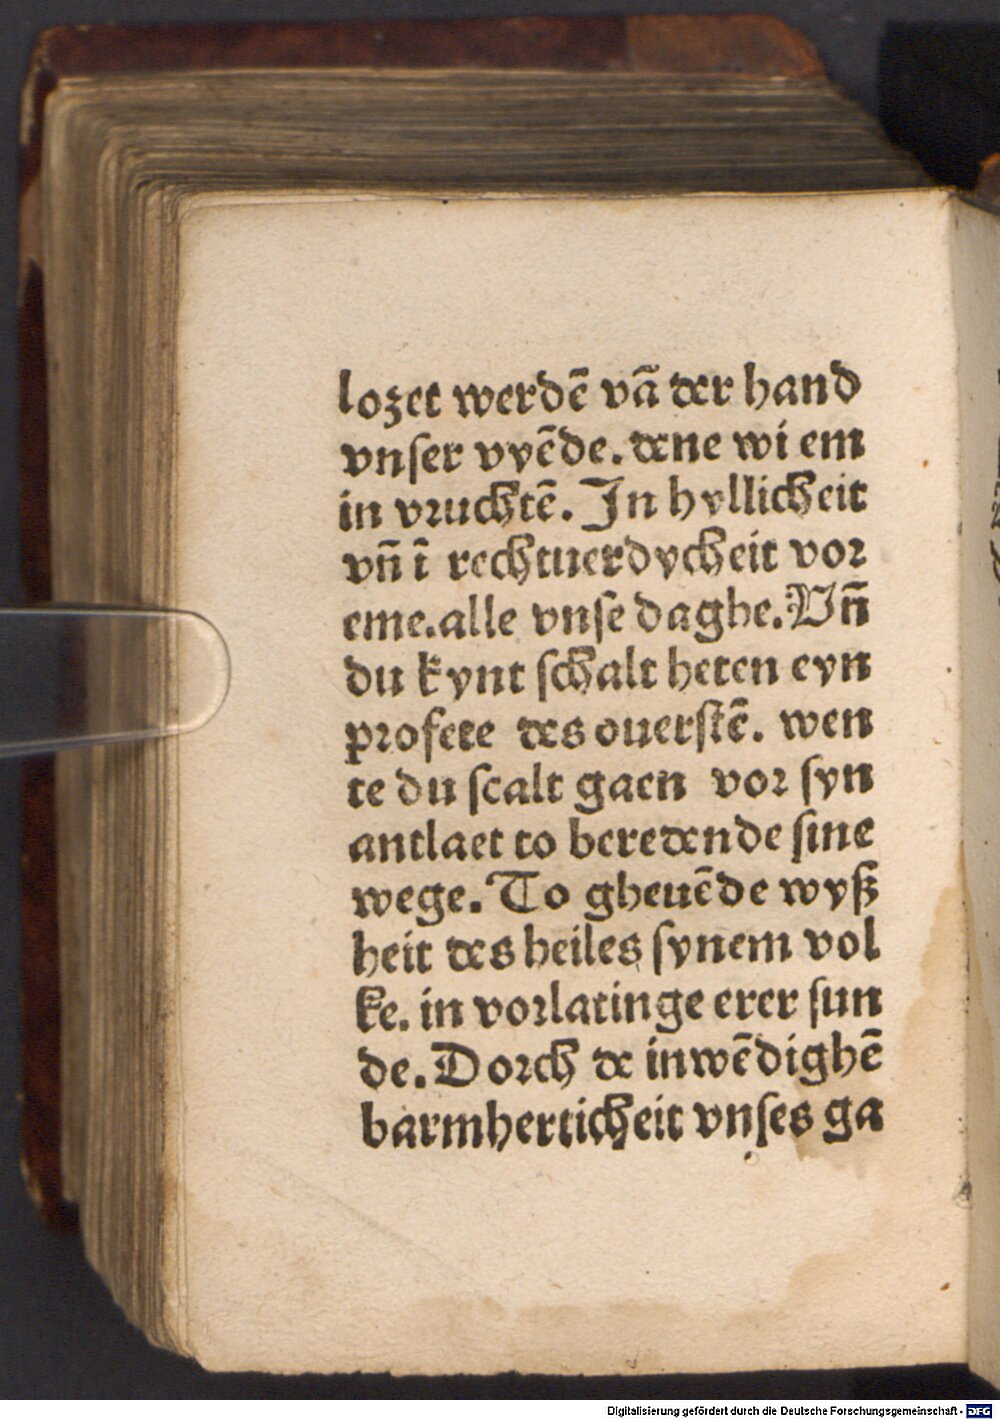 lozet werdē vā der hand
vnſer vyēde. dene wi em
in vruchtē. In hyllicheit
vn̄ ī rechtuerdycheit vor
eme. alle vnſe daghe. Vn̄
du kynt ſchalt heten eyn
profete des ouerſtē. wen
te du ſcalt gaen vor ſyn
antlaet to beredende ſine
wege. To gheuēde wyß
heit des heiles ſynem vol
ke. in vorlatinge erer ſun
de. Dorch de inwēdighē
barmherticheit vnſes ga
Digitalisierung gefördert durch die Deutsche Forschungsgemeinschaft - DFG